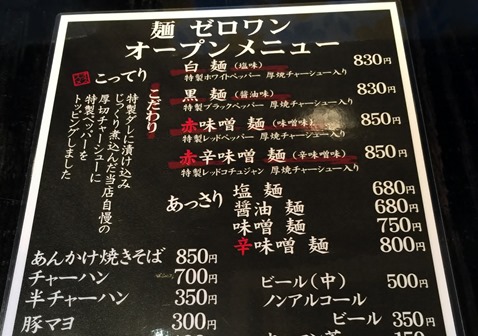 麺 ゼロワン
オープンメニュー
こってり
白 麺（塩味） 830円
特製ホワイトペッパー 厚焼チャーシュー入り
黒 麺（醤油味） 830円
特製ブラックペッパー 厚焼チャーシュー入り
赤味噌 麺（味噌味） 850円
特製レッドペッパー 厚焼チャーシュー入り
赤辛味噌 麺（辛味噌味） 850円
特製レッドコチュジャン 厚焼チャーシュー入り
こだわり
特製ダレに漬け込み
じっくり煮込んだ当店自慢の
厚切チャーシューに
特製ペッパーを
トッピングしました
あっさり
塩 麺 680円
醤油 麺 680円
味噌 麺 750円
辛味噌 麺 800円
あんかけ焼きそば 850円
チャーハン 700円
半チャーハン 350円
豚マヨ 300円
ビール（中） 500円
ノンアルコール
ビール 350円